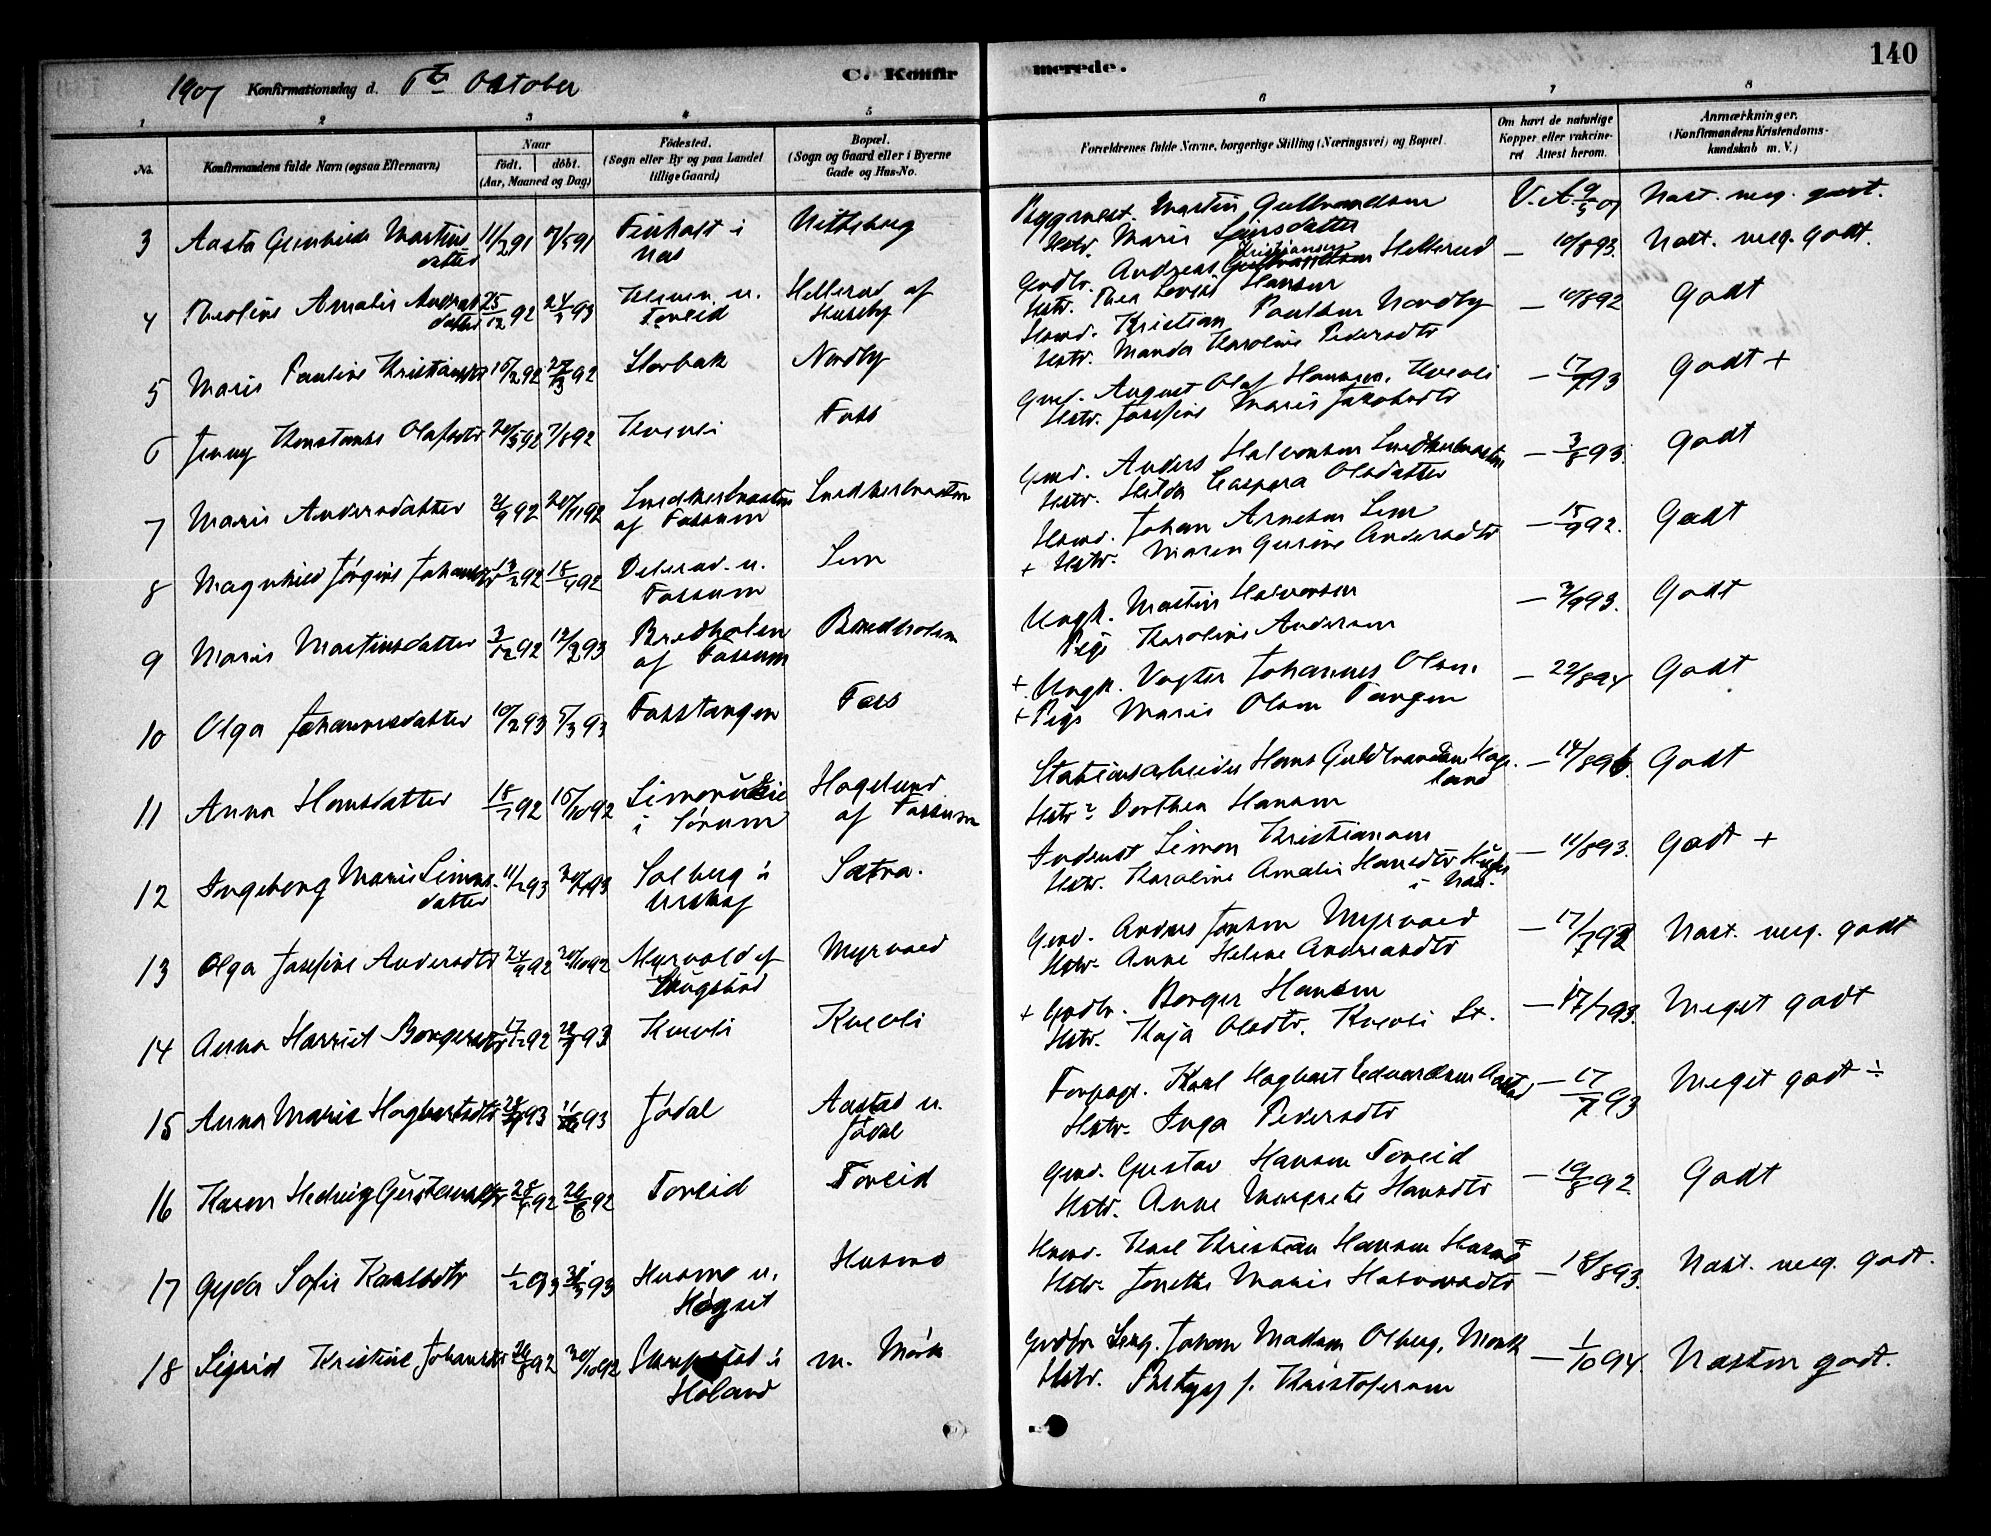 140
1907 Konfirmationsdag d. 6te Oktober
C. Konfirmerede.
1 2 3 4 5 6 7 8
No.
Konfirmandens fulde Navn (ogsaa Efternavn)
Naar
født. døbt.
(Aar, Maaned og Dag)
Fødested.
(Sogn eller By og paa Landet
tillige Gaard)
Bopæl.
(Sogn og Gaard eller i Byerne
Gade og Hus-No.
Forældrenes fulde Navne, borgerlige Stilling (Næringsvei) og Bopæl.
Om havt de naturlige
Kopper eller vakcine-
ret Attest herom.
Anmærkninger.
(Konfirmandens Kristendoms-
kundskab m. V.)
3 Aasta Martins
datter 11/2 91 7/5 91
i
Nes
Bygmest. Martin Gulbrandsen
Hstr. Marie Jensdatter
V.A. 9/5 07 Næst. meg. godt.
4 Theoline Amalie Andreas
datter 25/12 92 24/3 93
u.
Toreid
Hellerud af
Huseby
Gbr. Andreas Kristiansen Hellerud
Hstr. Thea Lovise Hansen
— 10/8 93. Næst. meg. godt.
5 Marie Pauline Kristiansdtr 15/2 92 27/3 92 Storbak Nordby
Hsmd. Kristian Paulsen Nordby
Hstr. Manda Karoline Pedersdtr
— 10/8 92 Godt
6 Jenny Konstanse Olafsdtr 20/5 92 7/8 92 Kveoli Foss
Gmd. August Olaf Hansen, Kveoli
Hstr. Josefine Marie Jakobsdtr
— 17/7 93 Godt +
7 Marie Andersdatter 21/9 92 20/11 92
af Fossum
Gmd. Anders Halvorsen
Hstr. Hilda Caspara Olsdatter
— 3/8 93. Godt
8 Magnhild Jørgine Johansdtr 13/2 92 18/4 92
u.
Fossum
Lem
Hsmd. Johan Arnesen Lem
+ Hstr. Maren Gurine Andersdtr
— 15/9 92. Godt
9 Marie Martinsdatter 3/12 92 12/2 93 Bredholen
af Fossum
Bredholen
Ungk. Martin Halvorsen
Pige Karoline Andersen
— 3/9 93. Godt
10 Olga Johannesdatter 10/2 93 5/3 93 Fosstangen Foss
+ Ungk. Vogter Johannes Olsen.
+ Pige Marie Olsen Tangen
— 22/8 94 Godt
11 Anna Hansdatter 18/7 92 16/10 92
i Sørum
Hagelund
af Fossum
Stationsarbeider Hans Guldbrandsen Hage-
lund
Hstr. Dorthea Hansen
— 14/8 96. Godt
12 Ingeborg Marie Simons-
datter 11/2 93 Solberg i
Urskog
Sætra.
Inderst Simon Kristiansen
Hstr. Karoline Amalie Hansdtr
i Nes.
— 11/8 93. Godt +
13 Olga Josefine Andersdtr 24/9 92 20/10 92 Myrvold af
Myrvold
Gmd. Anders Jensen Myrvold
Hstr. Anne Helene Andreasdtr
— 17/7 93 Næst. meg. godt
14 Anna Harriet Borgersdtr 17/12 92 Kveoli Kveoli
+ Gbr. Borger Hansen
Hstr. Kaja Olsdtr. Kveoli St.
— 17/7 93. Meget godt
15 Anna Marie Hagbartsdtr Jødal Aastad u.
Jødal
Forpagt. Karl Hagbart Edvardsen Aastad
Hstr. Inga Pedersdtr
— 17/7 93 Meget godt ÷
16 Karen Hedvig Gustavsdtr 25/4 92 26/6 92 Toreid Toreid
Gmd. Gustav Hansen Toreid
Hstr. Anne Margrete Hansdtr
— 19/8 92 Godt
17 Gyda Sofie Karlsdtr 1/2 93 Husmo u.
Høgset
Husmo
Hsmd. Karl Kristian Hansen Husmo
Hstr. Jonette Marie Halvorsdtr
— 18/8 93. Næst. meg. godt.
18 Sigrid Kristine Johansdtr 26/8 92 30/10 92
i
Høland
m. Mørk
Gbr. Johan Madsen Olberg, Mørk
Hstr. f. Kristofersen
— 1/10 94. Næsten godt.